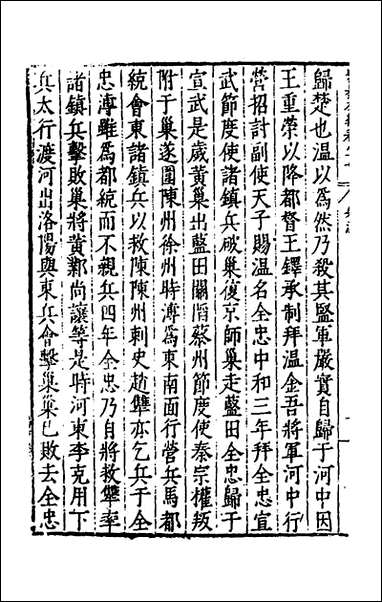 歸楚也温以爲然乃殺其監軍嚴實自歸于河中因
王重榮以降都督王鐸承制拜温金吾將軍河中行
營招討副使天子賜温名全忠中和三年拜全忠宣
武節度使諸鎮兵破巢復京師巢走藍田全忠歸于
宣武是歲黄巢出藍田關䧟蔡州節度使秦宗權叛
附于巢遂圍陳州徐州時溥爲東南面行營兵馬都
統會東諸鎮兵以救陳陳州刺史趙犫亦乞兵于全
忠溥雖爲都統而不親兵四年全忠乃自將救犫率
諸鎮兵擊敗巢將黄鄴尚讓等是時河東李克用下
兵太行渡河出洛陽與東兵會擊巢巢已敗去全忠